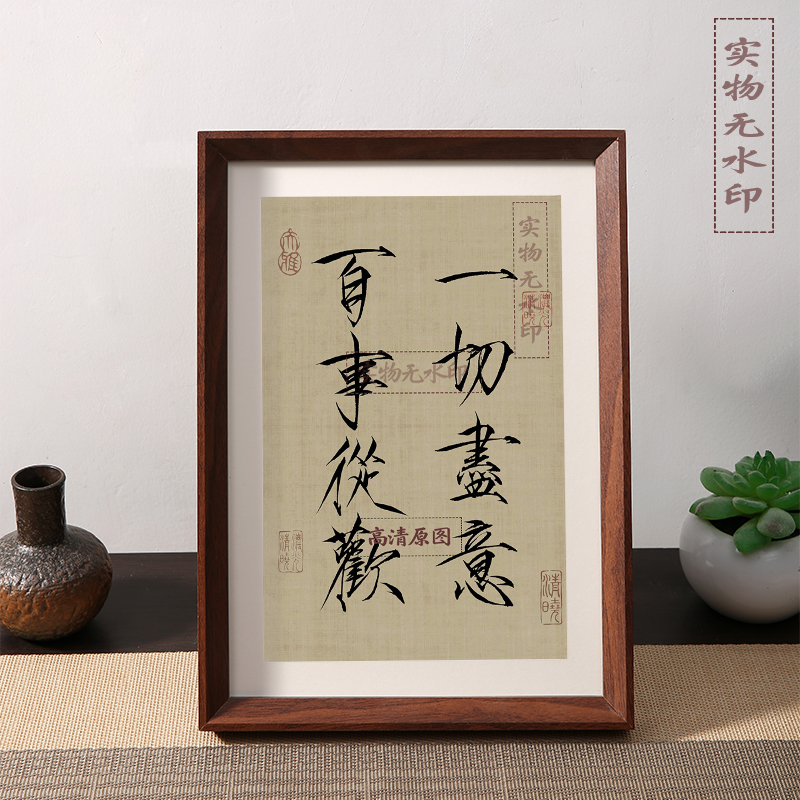 一切盡意
百事從歡
实物无水印
实物无水印
实物无水印
高清原图
大雅
清曉